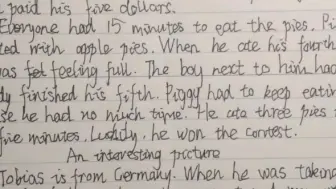 paid his five dollars.
Everyone had 15 minutes to eat the pies. Pi
ted with apple pies. When he ate his fourth
as fel feeling full. The boy next to him had
dy finished his fifth. Piggy had to keep eatin
se he had no much time. He ate three pies
five minutes. Luckily, he won the contest.
An interesting picture
Tobias is from Germany. When he was taken